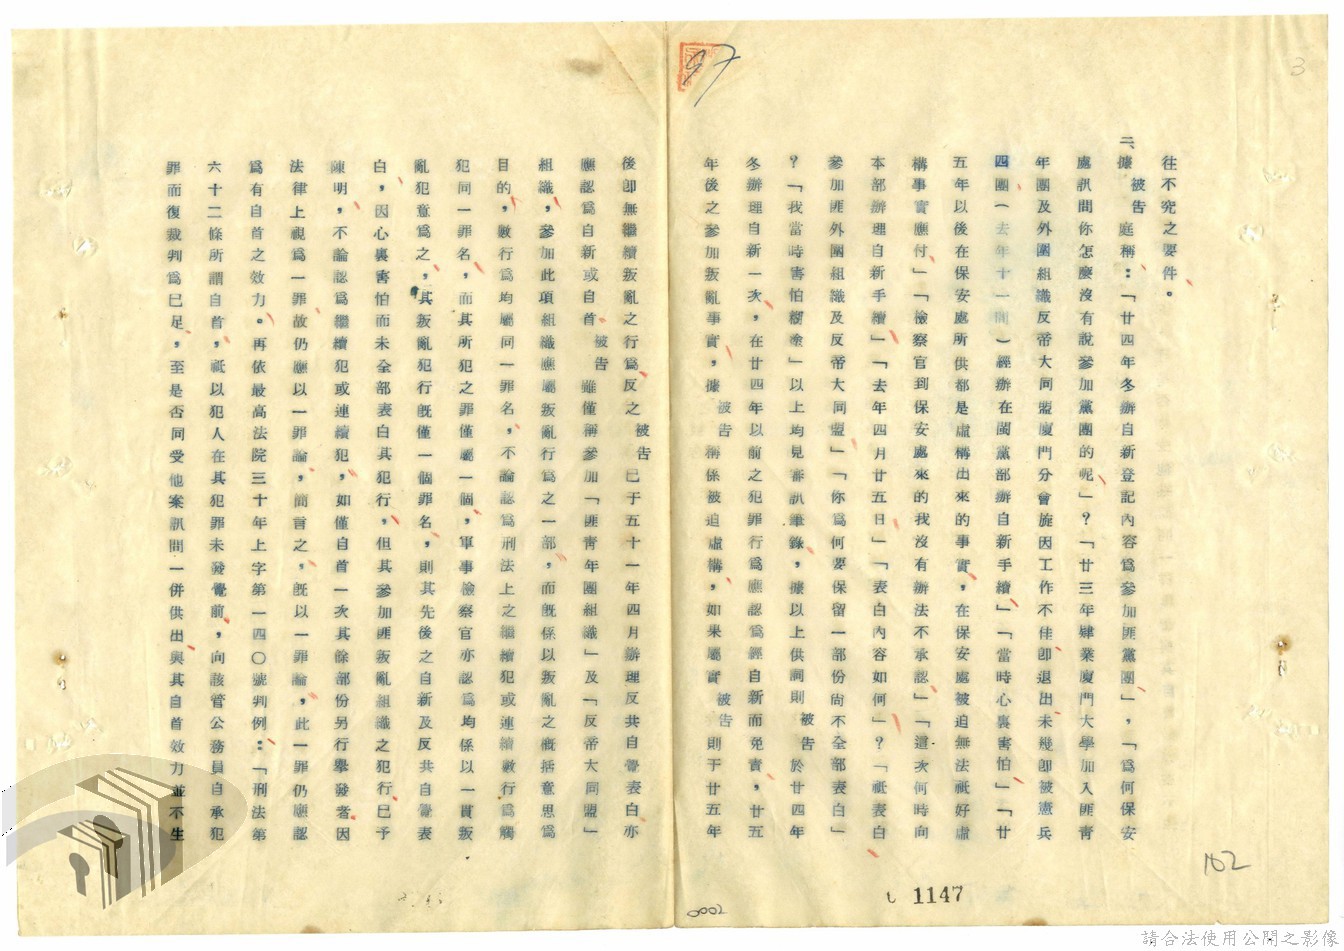 往不究之要件。
二、據被告庭稱：「廿四年冬辦自新登記內容爲參加匪黨團」，「爲何保安
處訊問你怎麼沒有說參加黨團的呢」？「廿三年肄業廈門大學加入匪靑
年團及外圍組識反帝大同盟廈門分會旋因工作不佳卽退出未幾卽被憲兵
四團（去年十一問）經辦在閩黨部辦自新手續」「當時心裏害怕」「廿
五年以後在保安處所供都是虛構出來的事實，在保安處被迫無法祗好虛
構事實應付」「檢察官到保安處來的我沒有辦法不承認」「這次何時向
本部辦理自新手續」「去年四月廿五日」「表白內容如何」？「祗表白
參加匪外圍組識及反帝大同盟」「你爲何要保留一部份尙不全部表白」
？「我當時害怕糊塗」以上均見審訊筆錄，據以上供詞則被告於廿四年
冬辦理自新一次，在廿四年以前之犯罪行爲應認爲經自新而免責，廿五
年後之參加叛亂事實，據被告稱係被迫虛構，如果屬實被告則于廿五年
後卽無繼續叛亂之行爲反之被告已于五十一年四月辦理反共自覺表白亦
應認爲自新或自首被告雖僅稱參加「匪靑年團組識」及「反帝大同盟」
組識，參加此項組識應屬叛亂行爲之一部，而旣係以叛亂之槪括意思爲
目的，數行爲均屬同一罪名，不論認爲刑法上之繼續犯或連續數行爲觸
犯同一罪名，而其所犯之罪僅屬一個，軍事檢察官亦認爲均係以一貫叛
亂犯意爲之，其叛亂犯行旣僅一個罪名，則其先後之自新及反共自覺表
白，因心裏害怕而未全部表白其犯行，但其參加匪叛亂組識之犯行已予
陳明，不論認爲繼續犯或連續犯，如僅自首一次其餘部份另行舉發者因
法律上視爲一罪故仍應以一罪論，簡言之，旣以一罪論，此一罪仍應認
爲有自首之效力。再依最高法院三十年上字第一四〇號判例：「刑法第
六十二條所謂自首，祗以犯人在其犯罪未發覺前，向該管公務員自承犯
罪而復裁判爲已足，至是否同受他案訊問一併供出與其自首效力並不生
97
3
102
1147
0002
請合法使用公開之影像